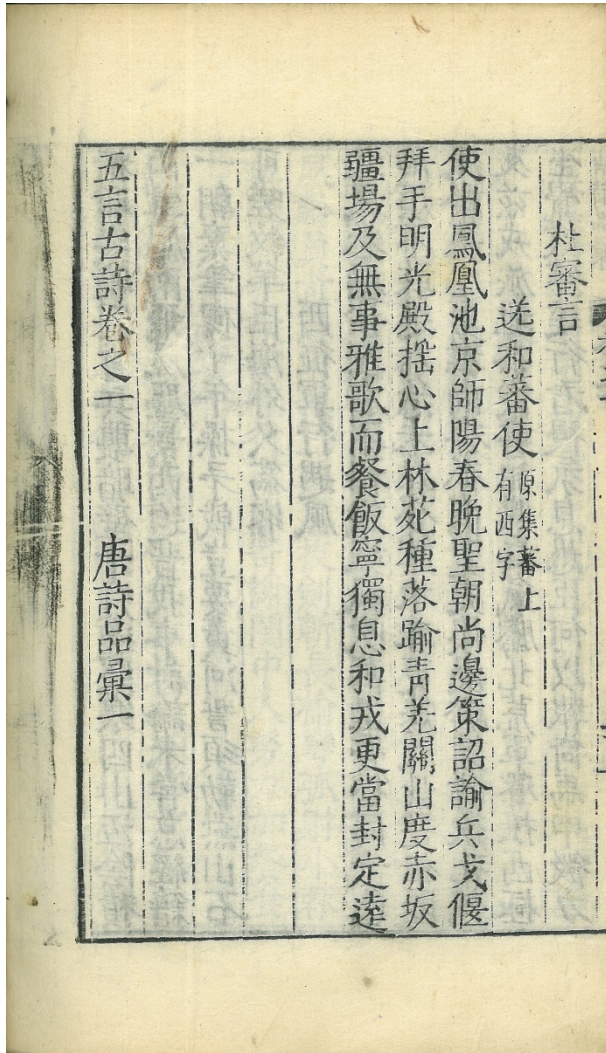 杜審言
送和蕃使原集蕃上有西字
使出鳳凰池京師陽春晚聖朝尚邊策詔諭兵戈偃
拜手明光殿揺心上林苑種落踰青羌關山度赤坂
疆場及無事雅歌而餐飯寧獨息和戎更當封定遠
五言古詩卷之一 唐詩品彙一